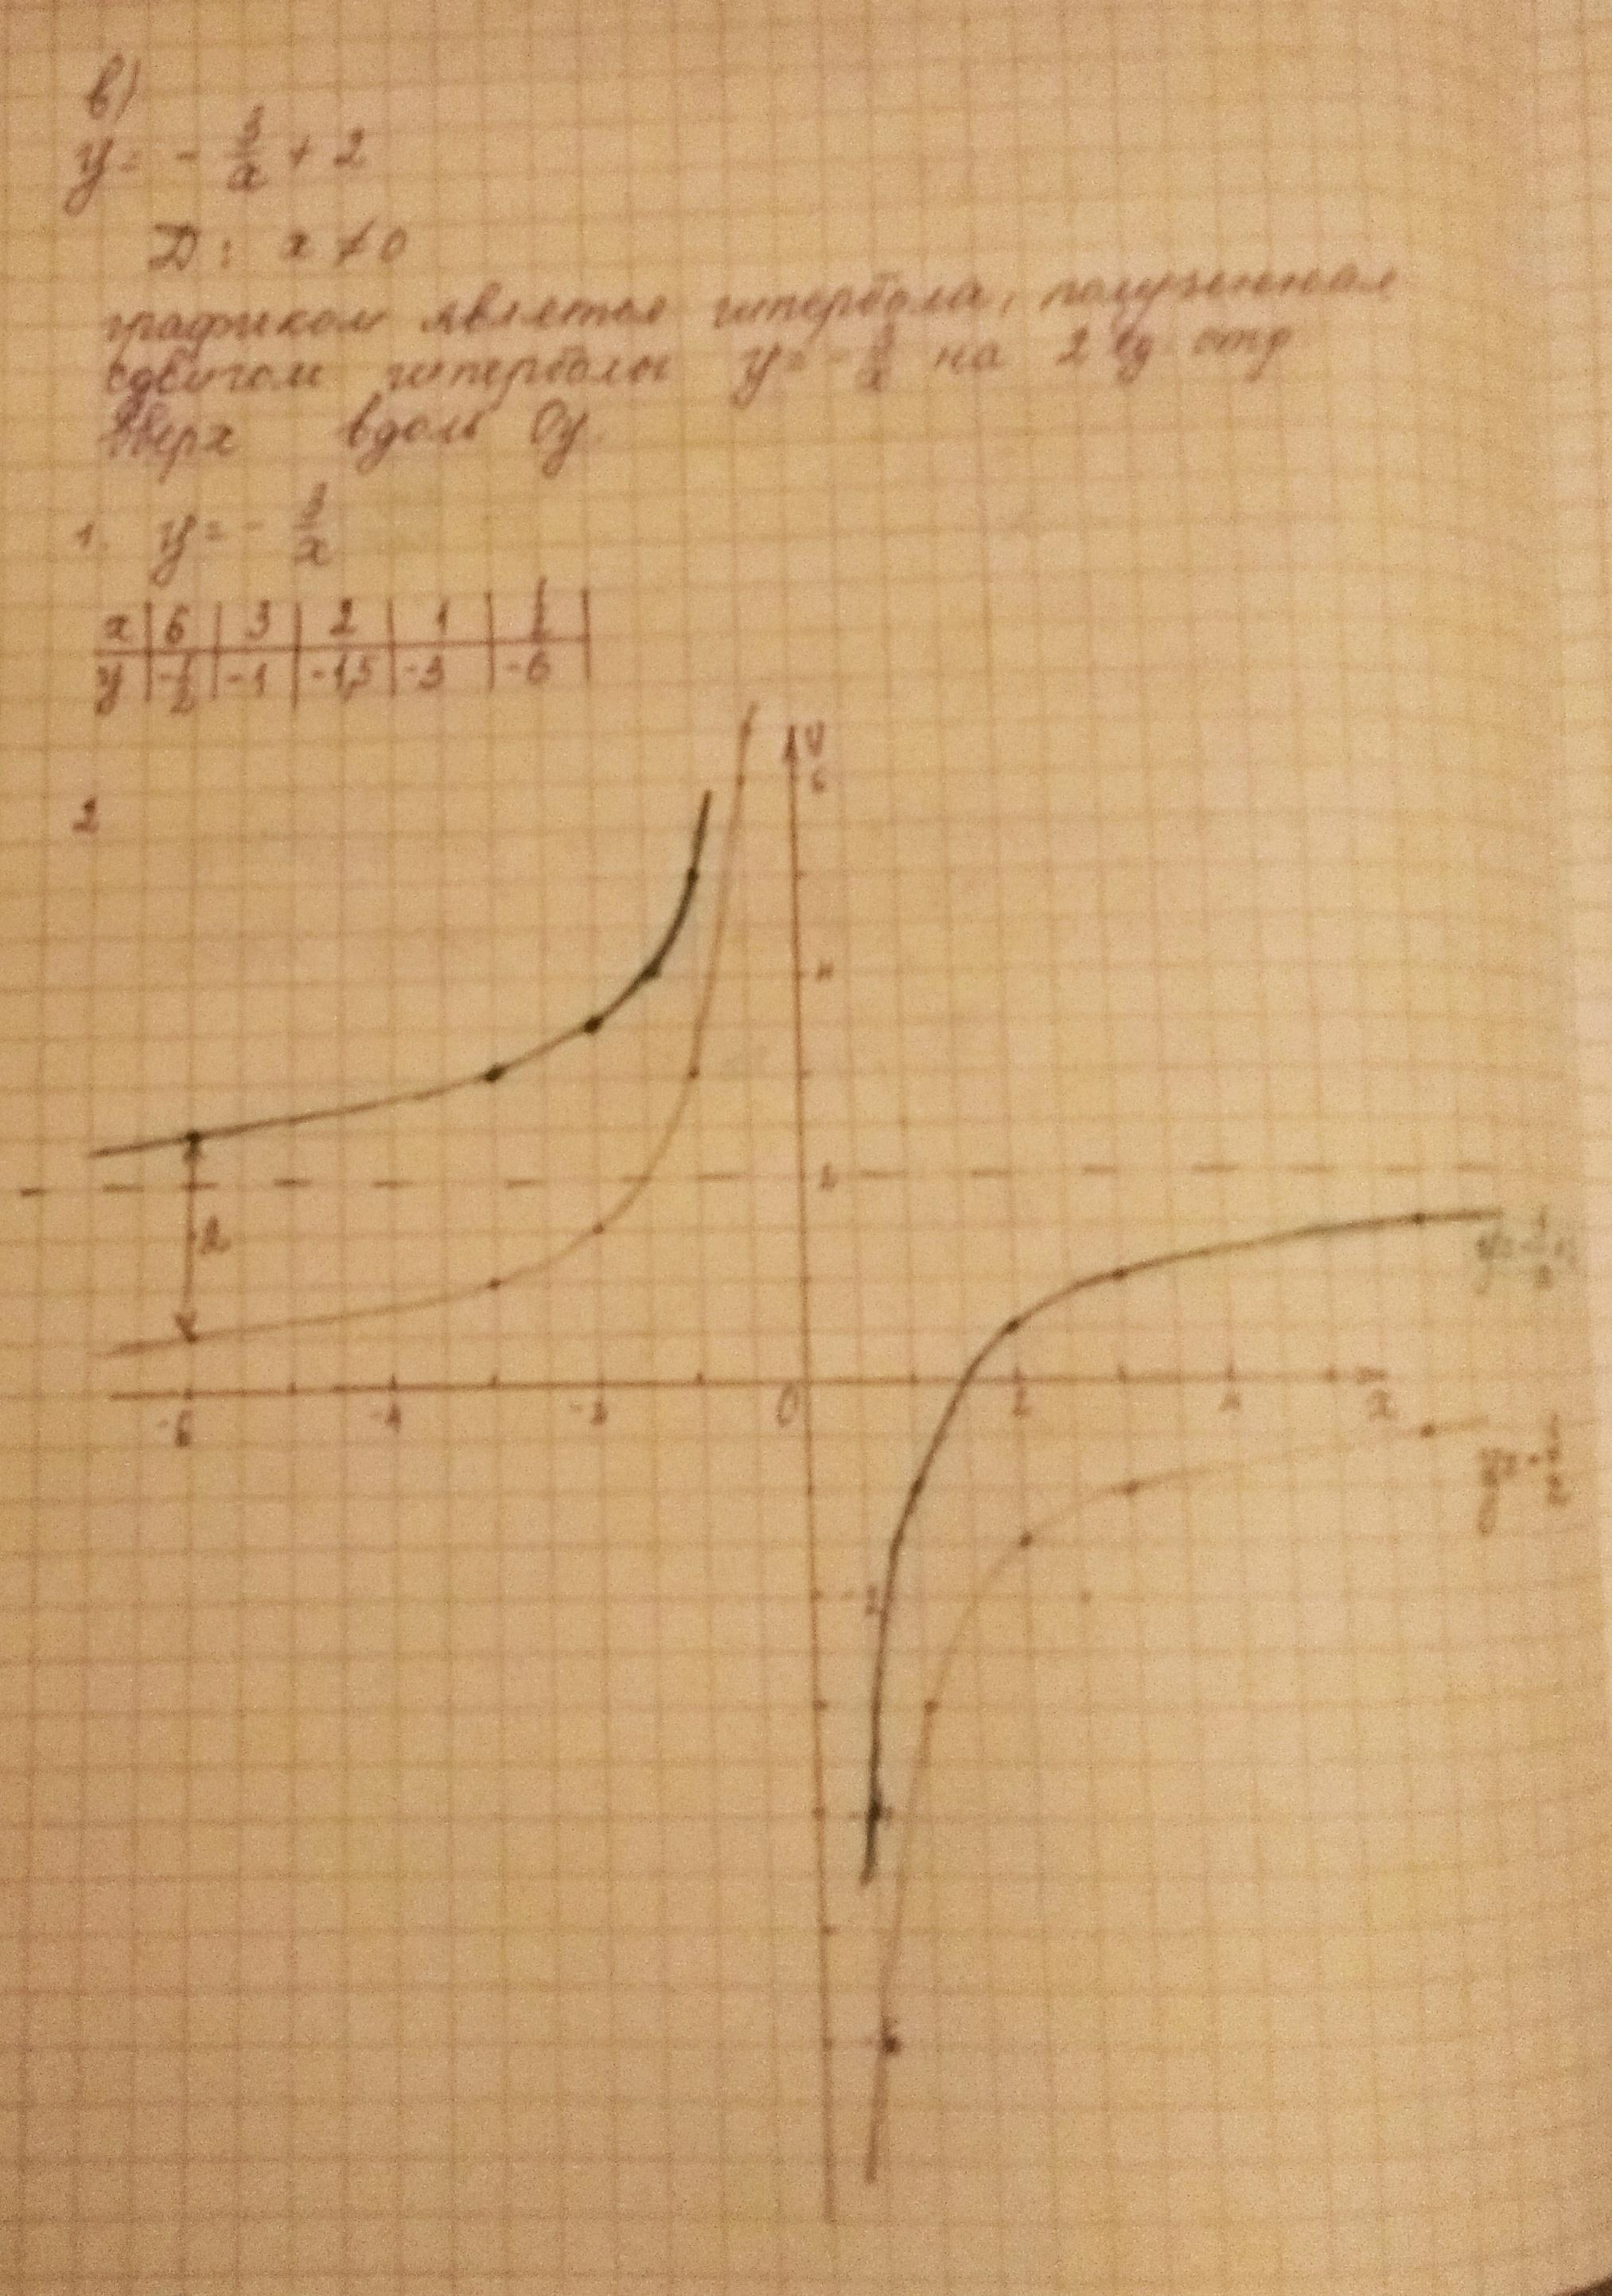 в)
y = - 3/x + 2
D: x ≠ 0
графиком является гипербола, полученная
сдвигом гиперболы y = - 3/x на 2 ед. отр
вверх вдоль Oy.
1. y = - 3/x
x | 6 | 3 | 2 | 1 | 1/2 |
y | -1/2 | -1 | -1,5 | -3 | -6 |
2
y
6
4
2
2
-6 -4 -2 0 2 4 x
-2